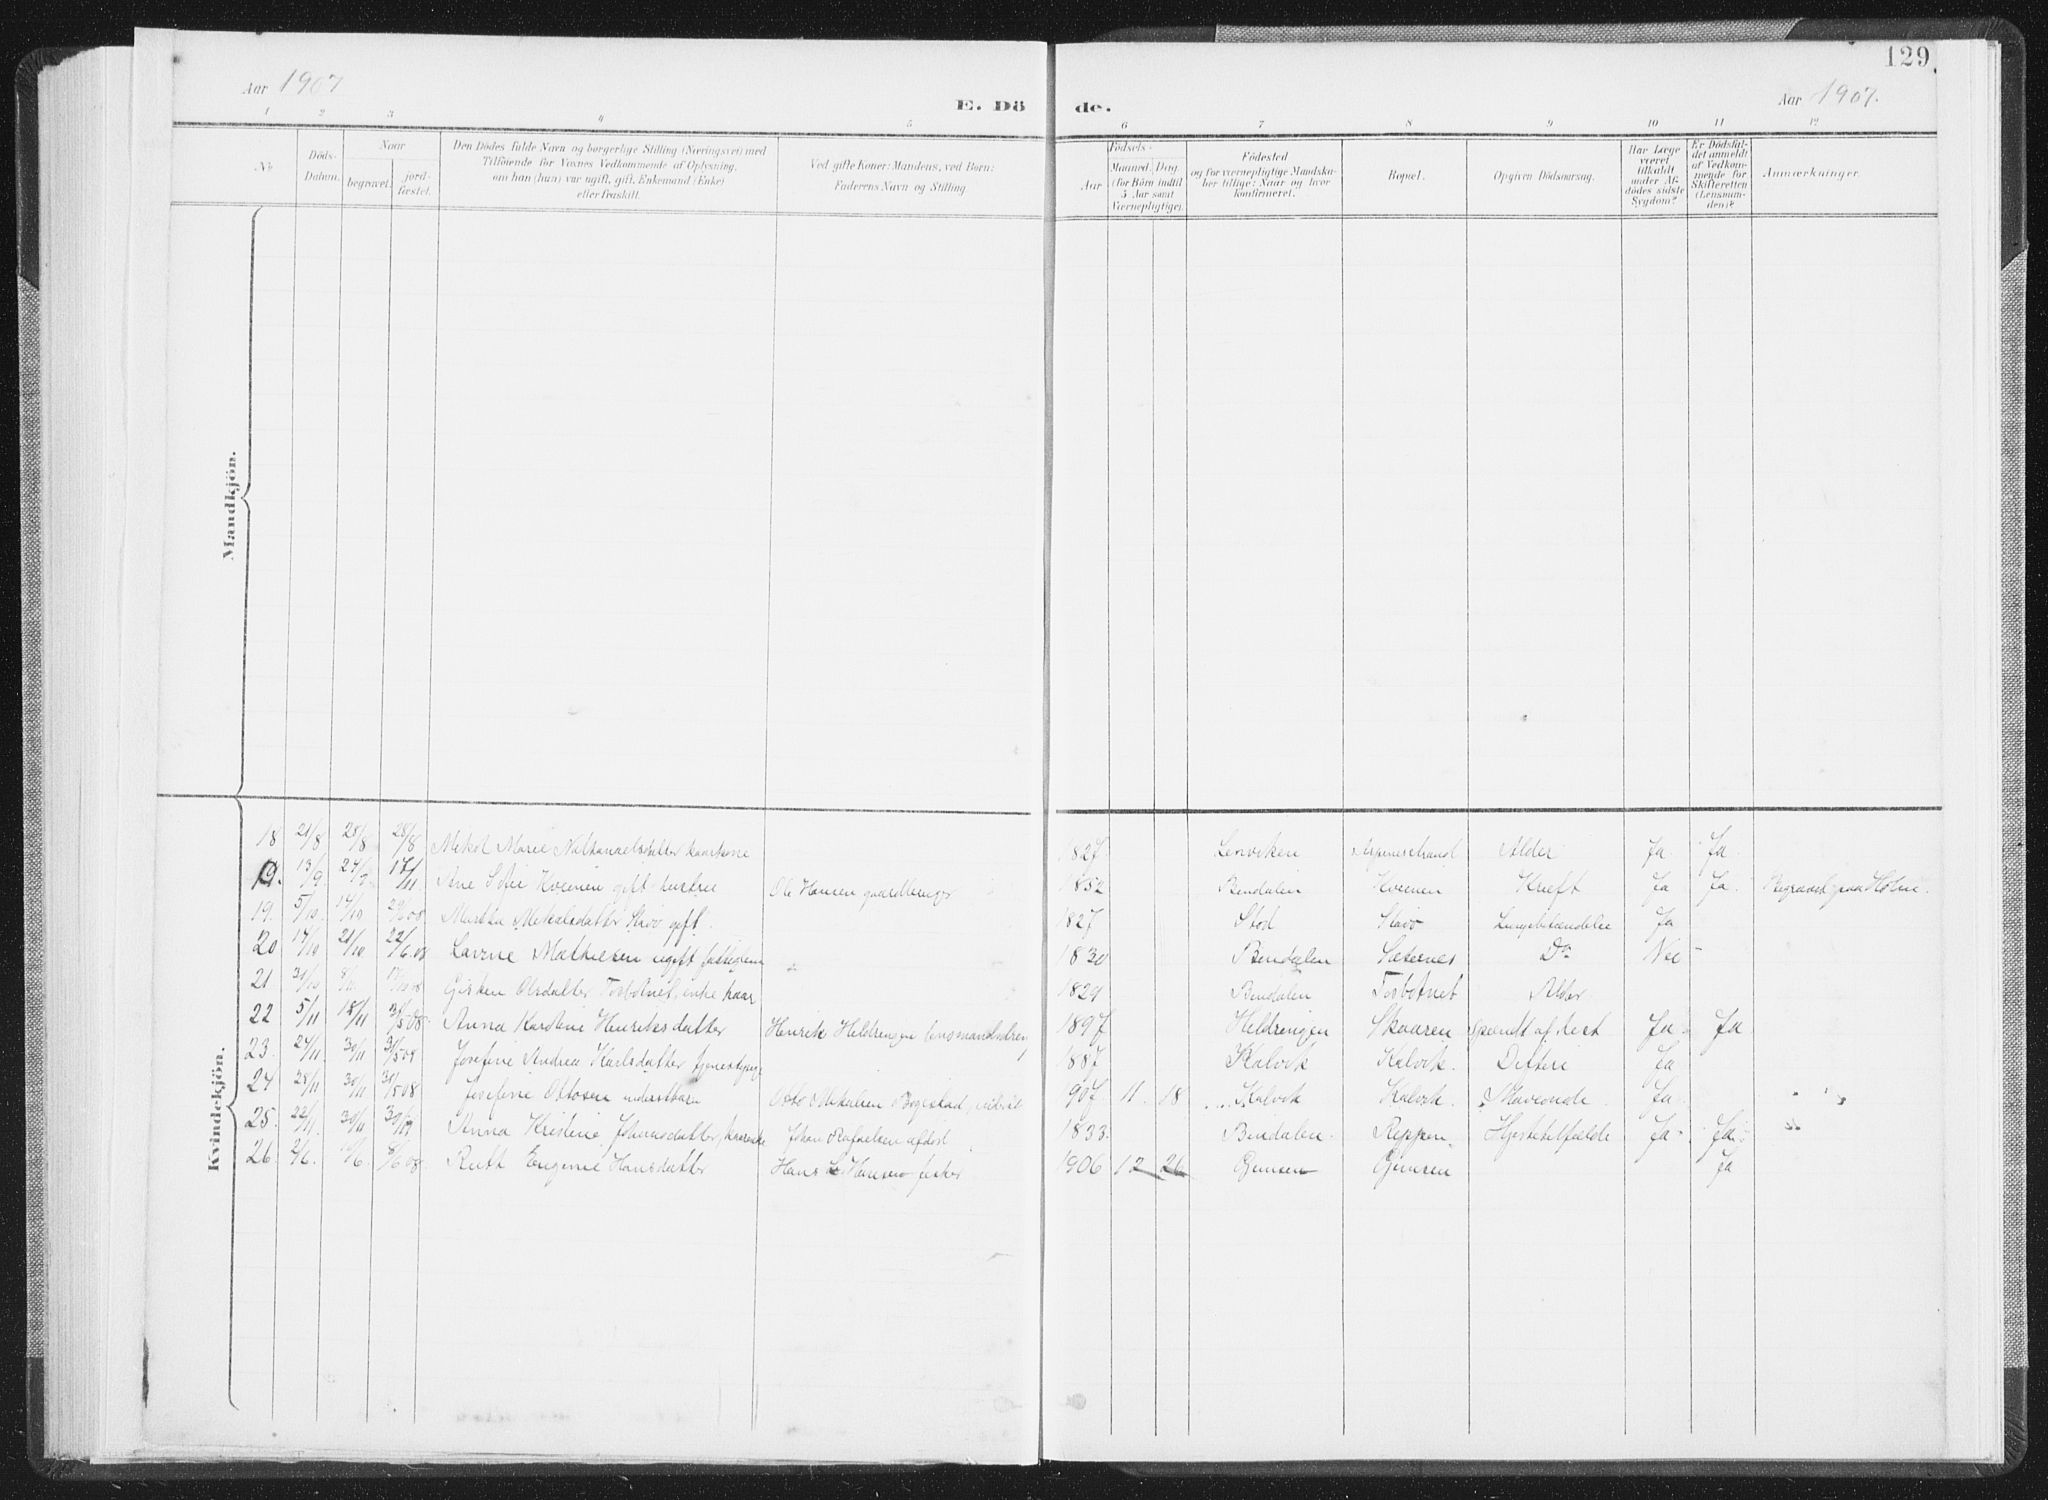 129.
Aar 1907
E. Dö de.
Aar 1907.
1 2 3 4 5 6 7 8 9 10 11 12
No
Döds-Datum.
Naar
begravet.
jord-fæstet.
Den Dödes fulde Navn og borgerlige Stilling (Næringsvei) med
Tilföiende for Voxnes Vedkommende af Oplysning,
om han (hun) var ugift, gift, Enkemand (Enke)
eller fraskilt.
Ved gifte Koner: Mandens, ved Börn:
Faderens Navn og Stilling
Födsels-
Aar
Maaned Dag
(for Börn indtil
5 Aar samt
Værnepligtige).
Födested
og for værnepligtige Mandska-
ber tillige: Naar og hvor
konfirmeret.
Bopæl.
Opgiven Dödsaarsag.
Har Læge
været
tilkaldt
under Af-
dödes sidste
Sygdom?
Er Dödsfal-
det anmeldt
af Vedkom-
mende for
Skifteretten
(Lensman-
den)?
Anmærkninger.
Mandkjön.
Kvindekjön.
18 21/8 28/8 28/8 Mekol Marie Nathanaelsdatter kaarkone 1827 Lenviken Alder Ja Ja
19. 13/9 17/11 Ane Kveinen gift hustru Ole Hansen gaardbruger 1852 Bindalen Kveinen Kræft Ja Ja. Begravet paa Holm
19. 5/10 14/10 Martha Mekalsdatter gift 1827 Stod Lungebetændelse Ja
20 14/10 21/10 22/6.08 Lavine Mathiesen ugift 1830 Bindalen Do Nei
21 31/10 Gisken Olsdatter Terbotnet, enke kaar 1829 Bindalen Terbotnet Alder
22 5/11 18/11 31/5 08. Anna Karoline Henriksdatter Henrik Heldringen 1897 Heldringen Skaaren Spændt af hest Ja Ja
23. 24/11 30/11 31/5 08 Josefine Andrea Karlsdatter tjenestepige 1887 Kalvik Kalvik. Ja
24 28/11 30/11 31/5 08 Josefine Ottosen Otto Mikalsen Bogestad 907 11. 18 Kalvik Kalvik. Maveonde Ja
25. 30/11 Anna Kristine Johansdatter, kaarenke Johan Rafaelsen afdöd 1833. Bindalen. Reppen Hjertetilfælde Ja Ja
26. 2/6. 10/6. 8/6 08. Ruth Eugenie Hansdatter Hans L. Hansen fisker 1906 12 26 Gimsen Gimsen Ja